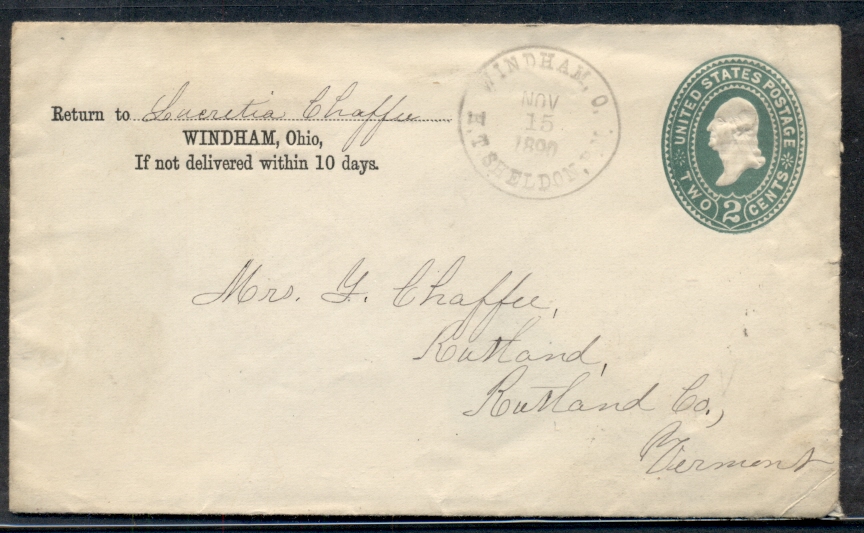 Return to Lucretia Chaffee
WINDHAM, Ohio,
If not delivered within 10 days.
WINDHAM, O.
NOV
15
1890
E.T. SHELDON, P.M.
UNITED STATES POSTAGE
TWO 2 CENTS
Mrs. F. Chaffee,
Rutland,
Rutland Co.,
Vermont